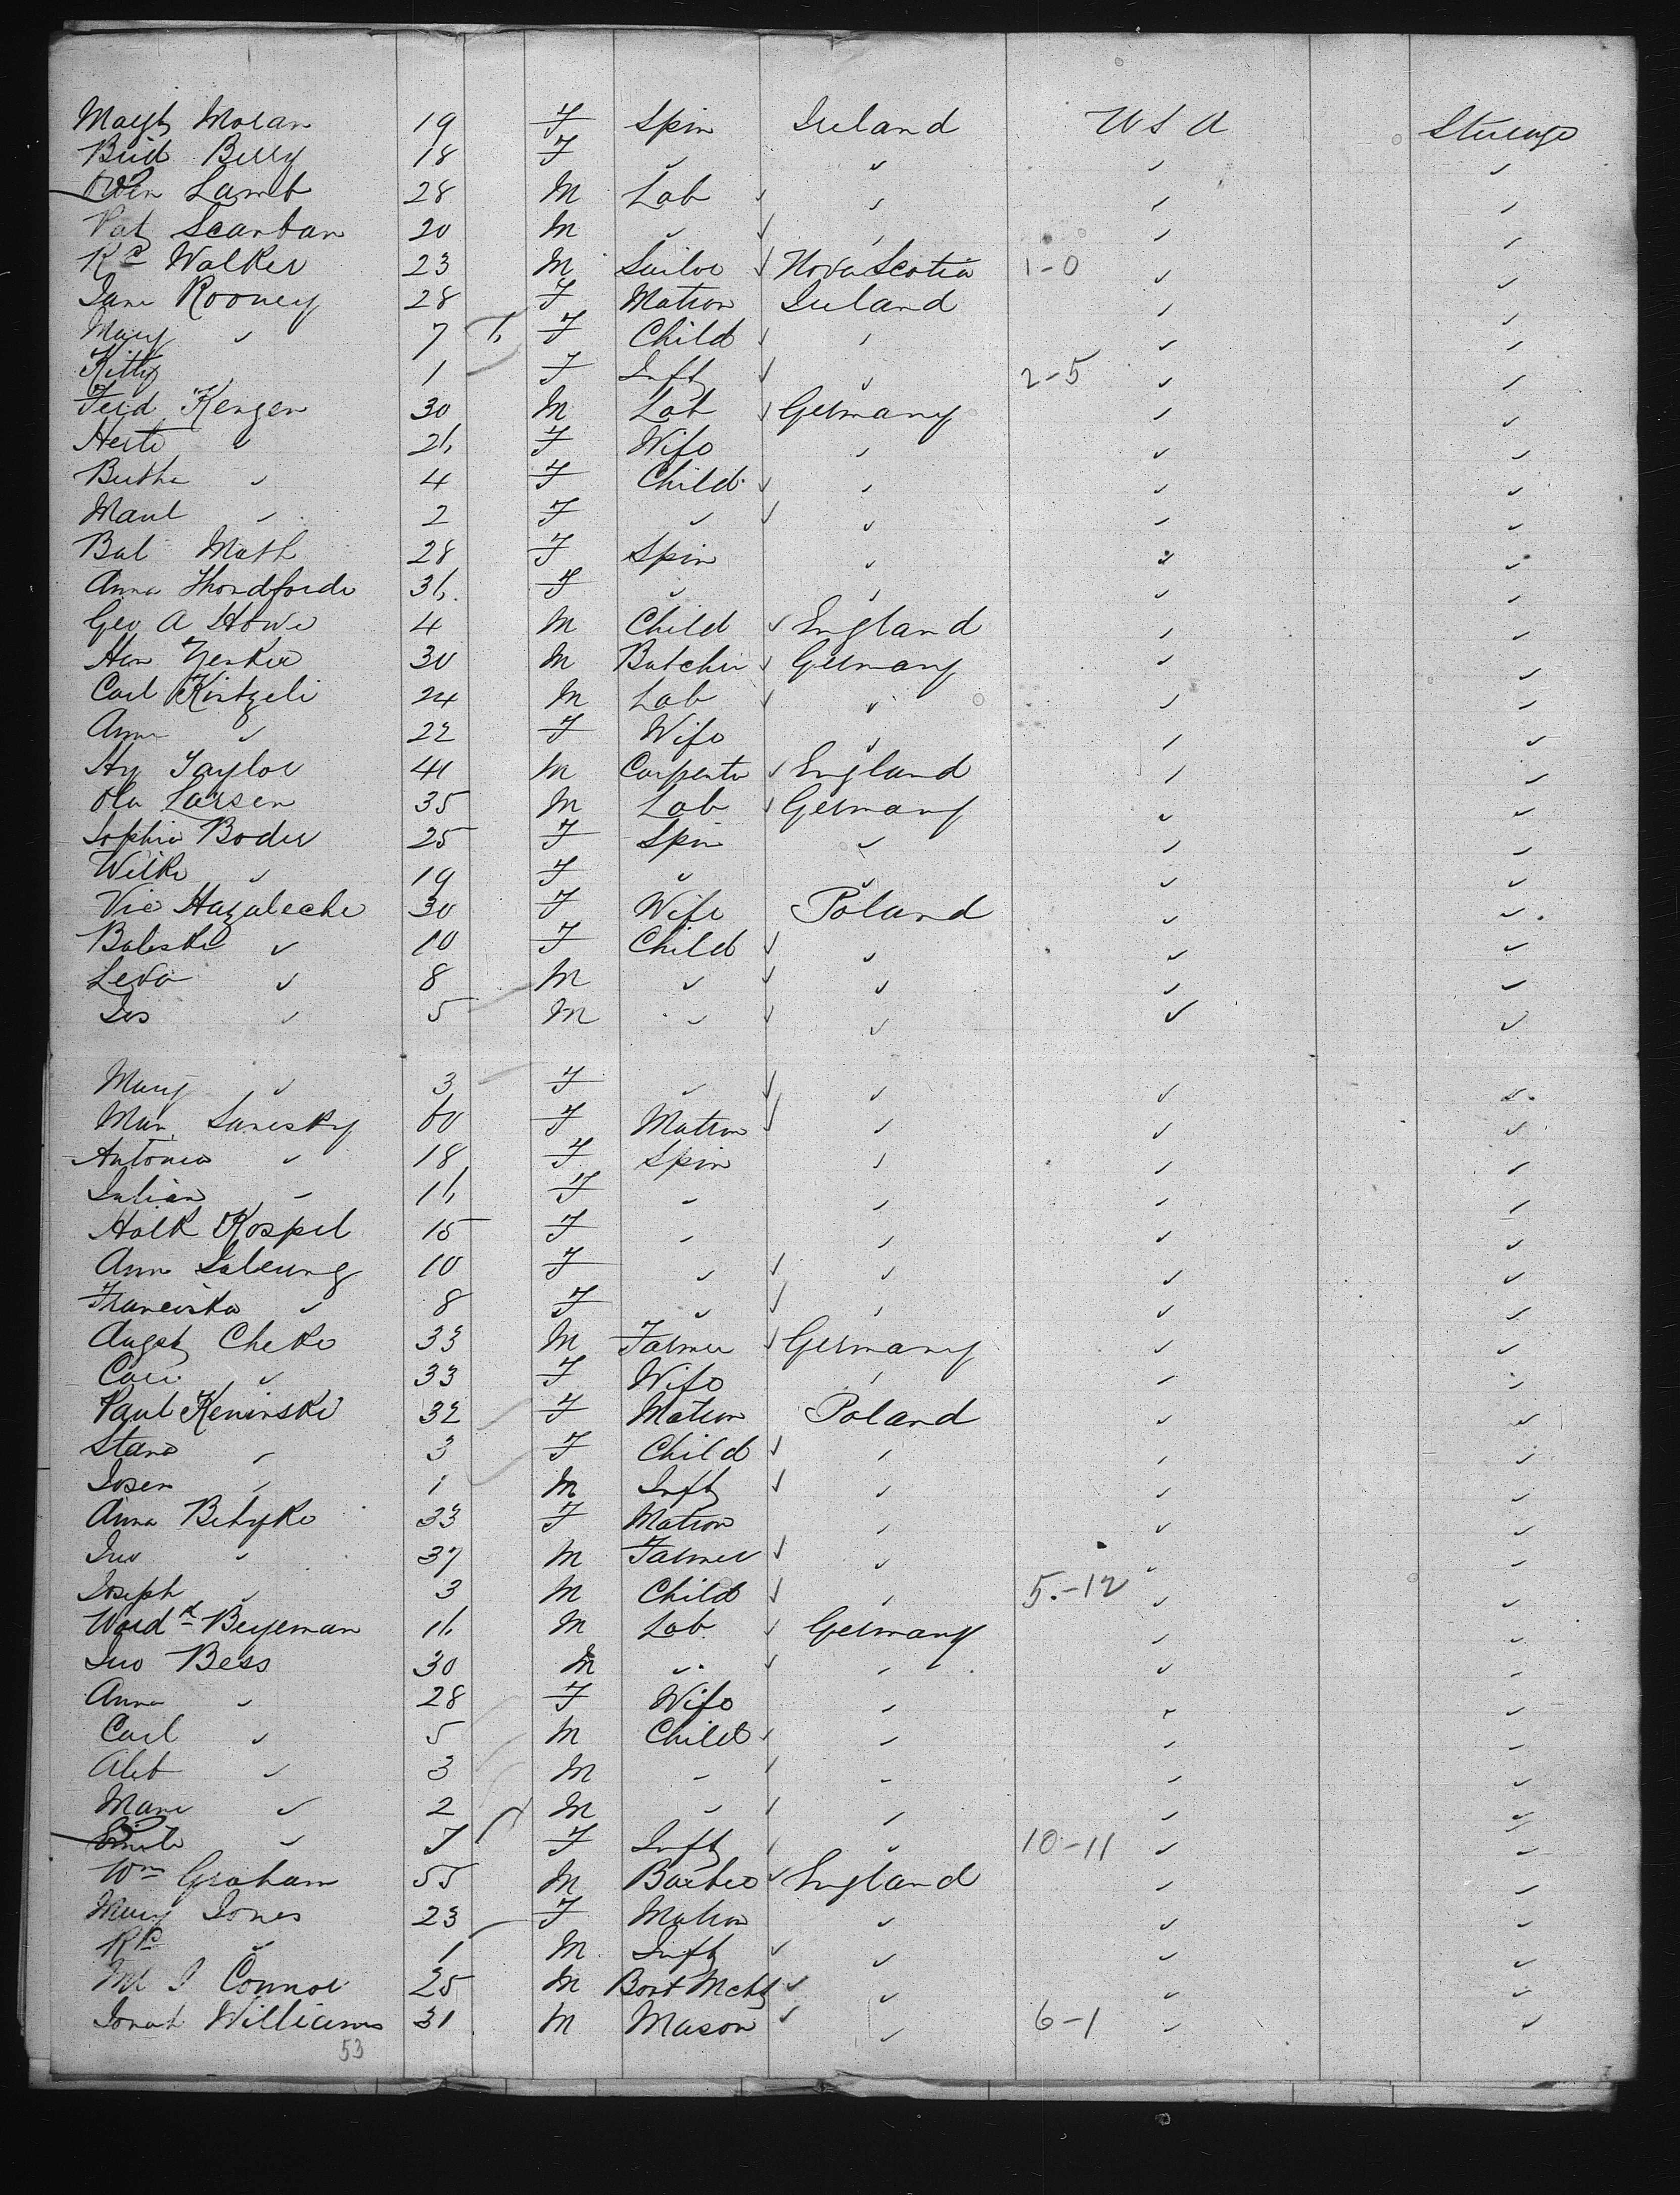 Margt Moran 19 F Spin Ireland U S A Steerage
Brid Berry 18 F " " " "
Owen Lamb 28 M Lab " " "
Pat Scanlan 20 M " " " "
Rd Walker 23 M Sailor Nova Scotia 1-0 " "
Jane Rooney 28 F Matron Ireland " "
Mary " 7 F Child " " "
Kitty 1 F Inft " 2-5 " "
Ferd Kengen 30 M Lab Germany " "
" 26 F Wife " " "
Bertha " 4 F Child " " "
" 2 F " " " "
Math 28 F Spin " " "
Anna 36 F " " " "
Geo A Howe 4 M Child England " "
30 M Butcher Germany " "
Carl Kintzeli 24 M Lab " " "
Anna " 22 F Wife " " "
Hy Taylor 41 M Carpenter England " "
Ola Larsen 35 M Lab Germany " "
Sophia Boder 25 F Spin " " "
Wilke " 19 F " " " "
Vic Hazaleche 30 F Wife Poland " "
Baleske " 10 F Child " " "
Leva " 8 M " " " "
Jos " 5 M " " " "
Mary " 3 F " " " "
60 F Matron " " "
Antonia " 18 F Spin " " "
Julian " 16 F " " " "
Halk Kospel 15 F " " " "
Ann 10 F " " " "
Franciska " 8 F " " " "
Augst Cheke 33 M Farmer Germany " "
" 33 F Wife " " "
Paul Keninski 32 F Matron Poland " "
Stano " 3 F Child " " "
Josen " 1 M Inft " " "
Anna Betyke 33 F Matron " " "
Jno " 37 M Farmer " " "
Joseph " 3 M Child " 5-12 " "
16 M Lab Germany " "
Jno Bess 30 M " " " "
Anna " 28 F Wife " " "
Carl " 5 M Child " " "
" 3 M " " " "
" 2 M " " " "
Emile " F Inft " 10-11 " "
Wm Graham 55 M Barber England " "
Mary Jones 23 F Matron " " "
Rd " 1 M Inft " " "
J Connor 25 M M " " "
Jonah Williams 31 M Mason " 6-1 " "
53